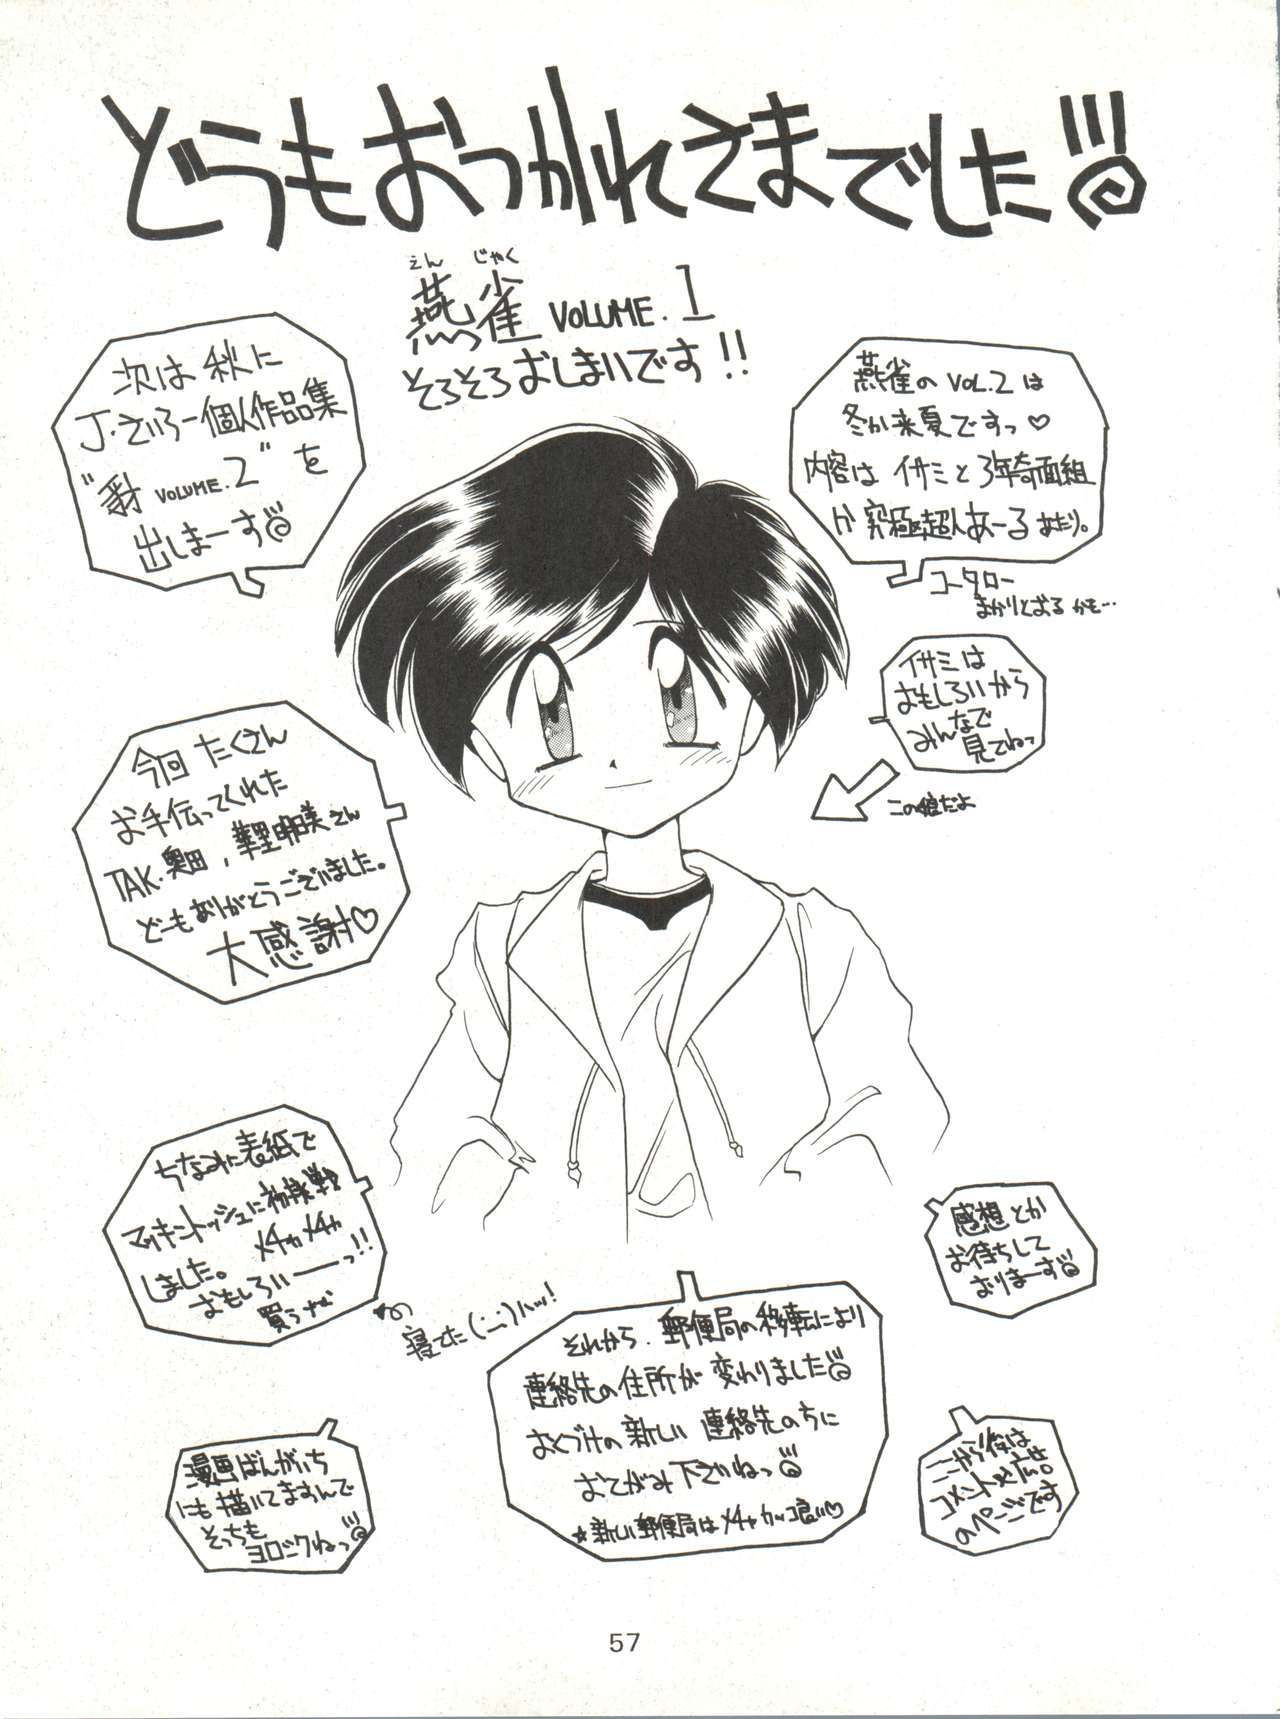 どうもおつかれさまでした
えん じゃく
燕雀 VOLUME.1
そろそろおしまいです!!
次は秋に
J・さいろー個人作品集
VOLUME.2" を
出しまーす
燕雀のVOL.2は
冬か来夏ですっ♡
内容はイサミと3年奇面組
か究極超人あ〜るあたり。
コータロー
まかりとおるかも…
イサミは
おもしろいから
みんなで
見てねっ
この娘だよ
今回たくさん
お手伝ってくれた
TAK.奥田,
さん
どーもありがとうございました。
大感謝♡
ちなみに表紙で
マッキントッシュに初挑戦
しました。メチャメチャ
おもしろいーーっ!!
買うぞ
感想とか
お待ちして
おりまーす
それから、郵便局の移転により
連絡先の住所が変わりました
おくづけの新しい連絡先のちに
おてがみ下さいねっ
☆新しい郵便局はメチャカッコ良い♡
漫画ばんがいち
にも描いてますんで
そっちも
ヨロシクねっ
ここから後は
コメント&広告
のページです
57